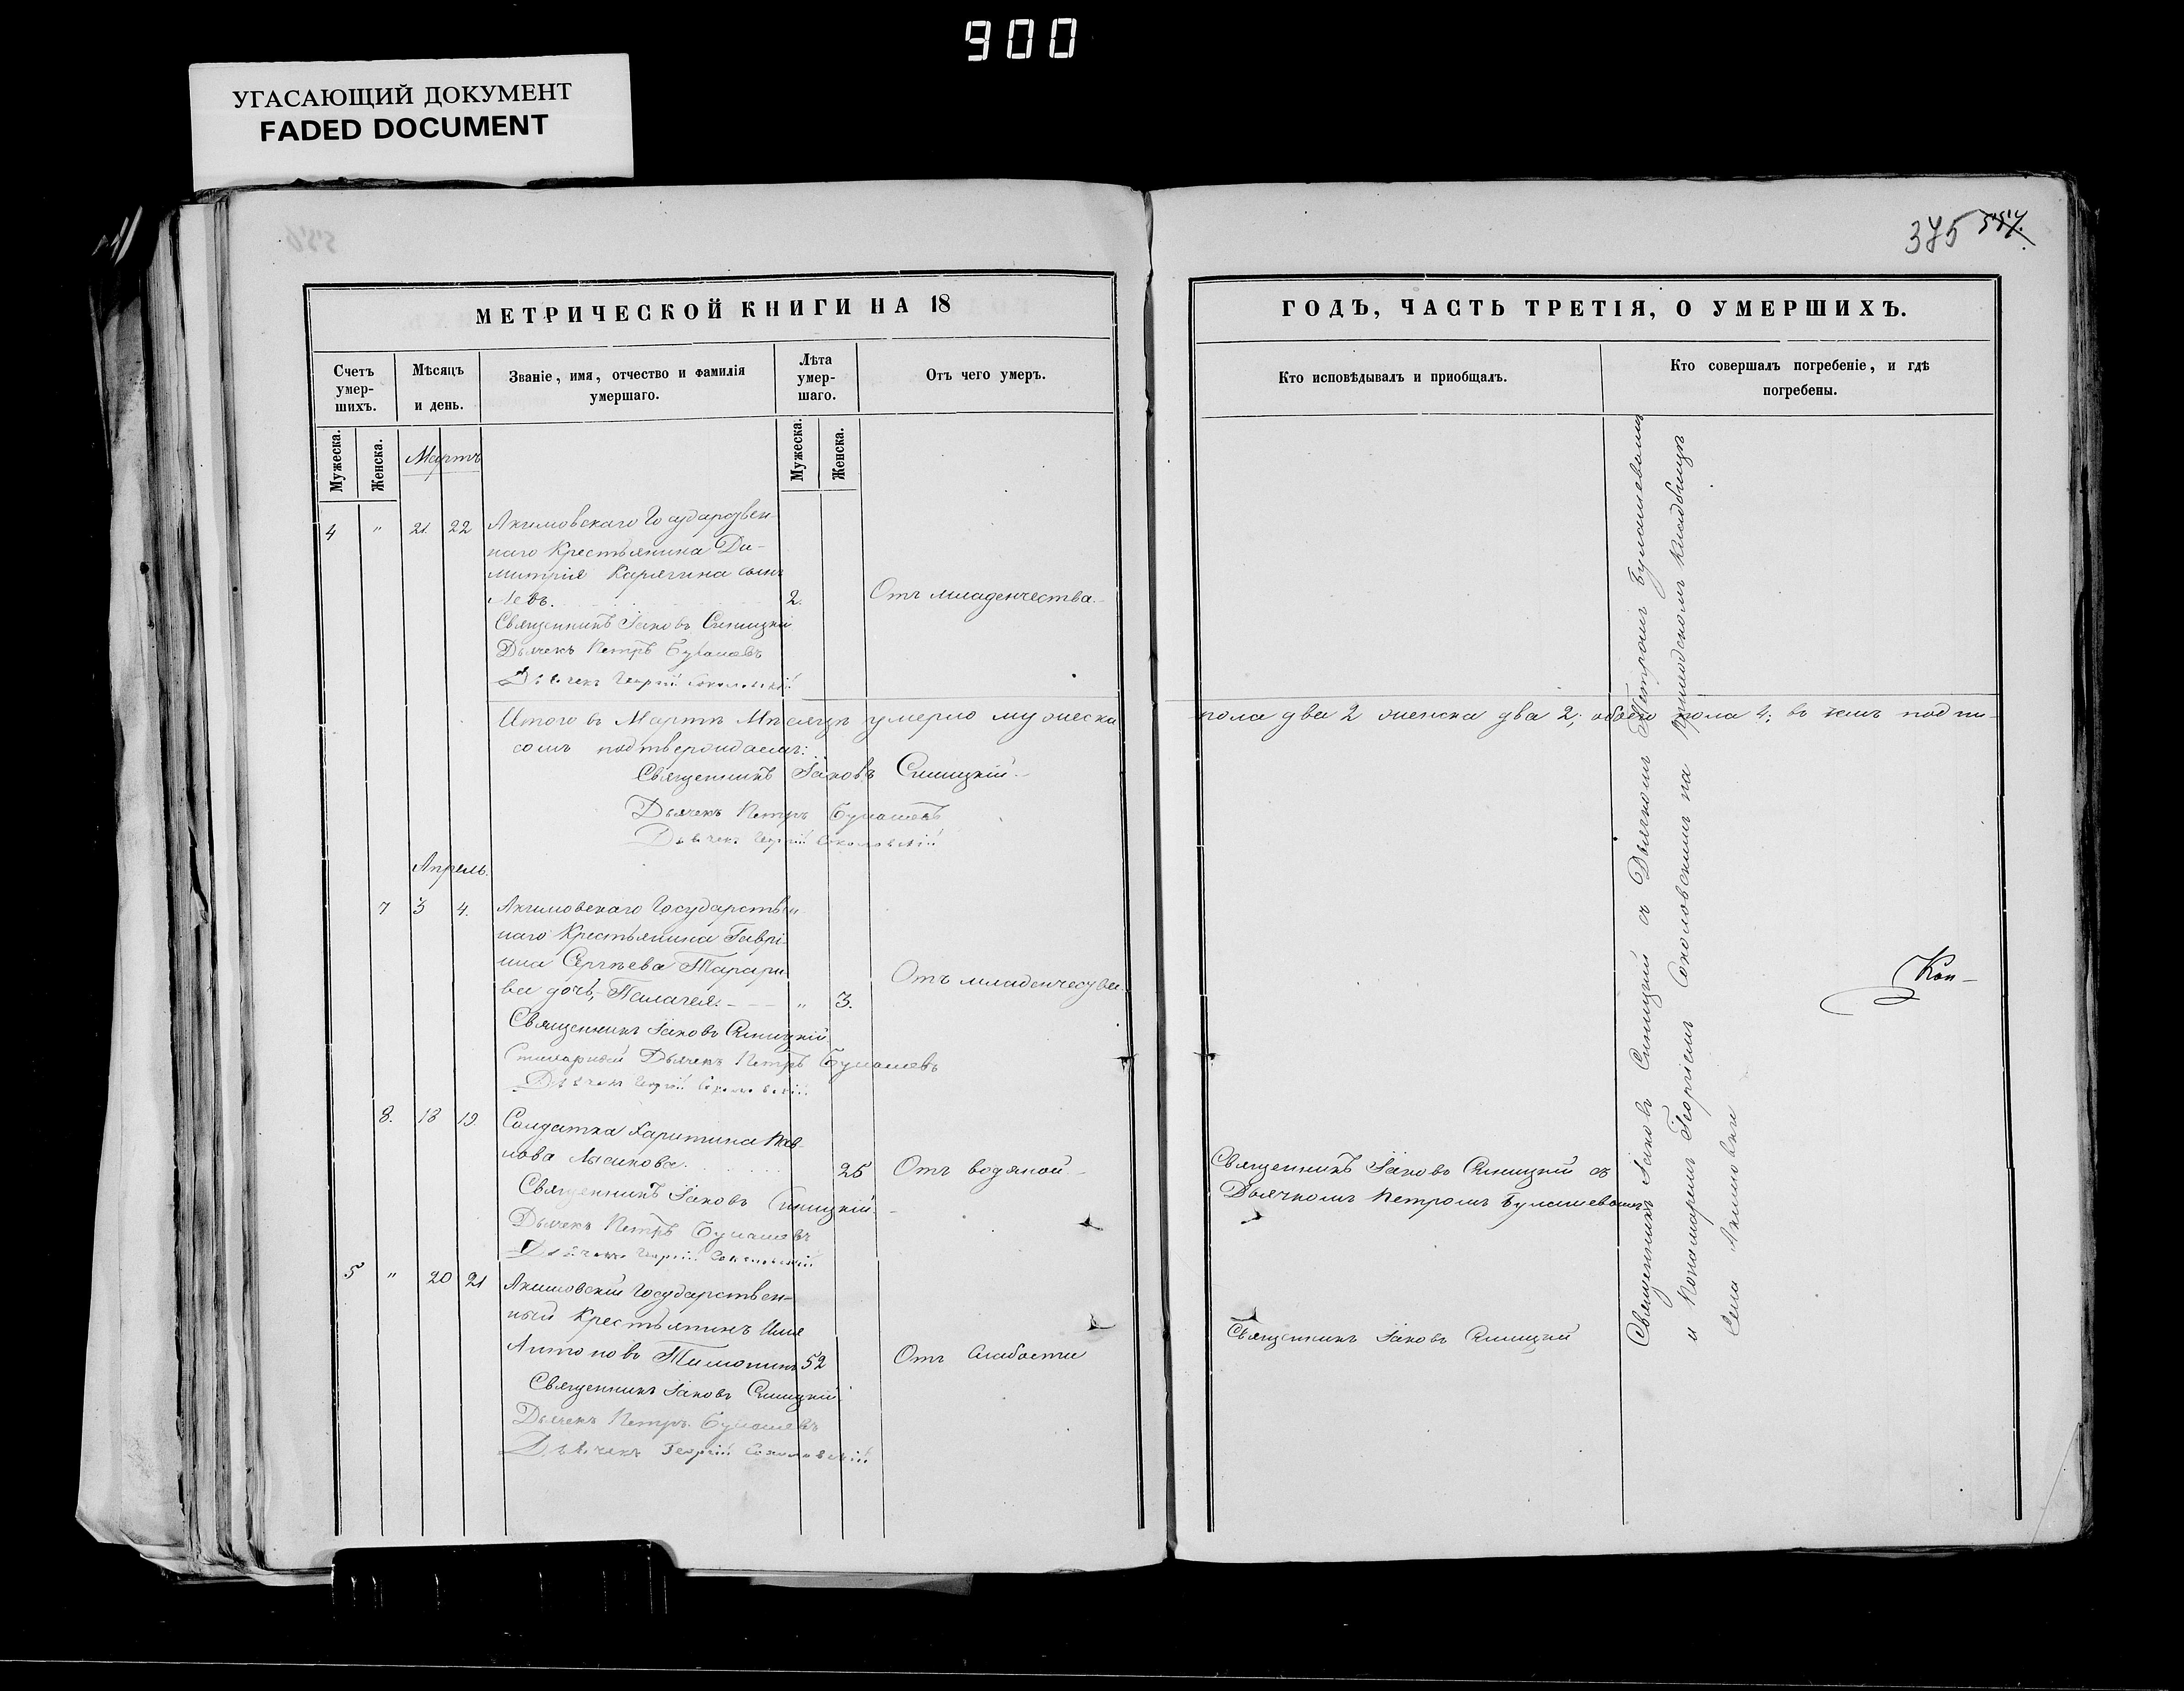 900
УГАСАЮЩИЙ ДОКУМЕНТ
FADED DOCUMENT
375 557.
МЕТРИЧЕСКОЙ КНИГИ НА 18
ГОДЪ, ЧАСТЬ ТРЕТІЯ, О УМЕРШИХЪ.
Счетъ умер-шихъ.
Мѣсяцъ и день.
Званіе, имя, отчество и фамилія умершаго.
Лѣта умер-шаго.
Отъ чего умеръ.
Кто исповѣдывалъ и приобщалъ.
Кто совершалъ погребеніе, и гдѣ погребены.
Мужеска.
Женска.
Мартъ
Мужеска.
Женска.
4 " 21. 22 Акимовскаго Государствен-
наго Крестьянина Ди-
митрія Карягина сынъ
Левъ. 2. Отъ младенчества.
Священникъ Іаковъ Синицкій
Дьячекъ Петръ Булашевъ
Дьячекъ Георгій Соколовскій
Итого въ Мартѣ Мѣсяцѣ умерло мужеска пола два 2 женска два 2; обоего пола 4; въ чемъ подпи-
сомъ подтверждаемъ:
Священникъ Іаковъ Синицкій.
Дьячекъ Петръ Булашевъ
Дьячекъ Георгій Соколовскій
Апрель.
7 3 4. Акимовскаго Государствен
наго Крестьянина Гаврі-
ила Сергѣева
дочь, Палагея. " 3. Отъ младенчества.
Священникъ Іаковъ Синицкій.
Дьячекъ Петръ Булашевъ
Дьячекъ Георгій Соколовскій
8. 18 19. Солдатка Харитина Пав-
лова Лысикова. 25 Отъ водяной.
Священникъ Іаковъ Синицкій съ
Дьячкомъ Петромъ Булашевымъ
Священникъ Іаковъ Синицкій.
Дьячекъ Петръ Булашевъ
Дьячекъ Георгій Соколовскій
5 " 20 21 Акимовскій Государствен-
ный Крестьянинъ Илія
Антоновъ 52 Отъ Слабости
Священникъ Іаковъ Синицкій
Священникъ Іаковъ Синицкій
Дьячекъ Петръ Булашевъ
Дьячекъ Георгій Соколовскій
Священникъ Іаковъ Синицкій съ Дьячкомъ Петромъ Булашевымъ
и Пономаремъ Георгіемъ Соколовскимъ на Приходскомъ Кладбищѣ
Села Акимовки